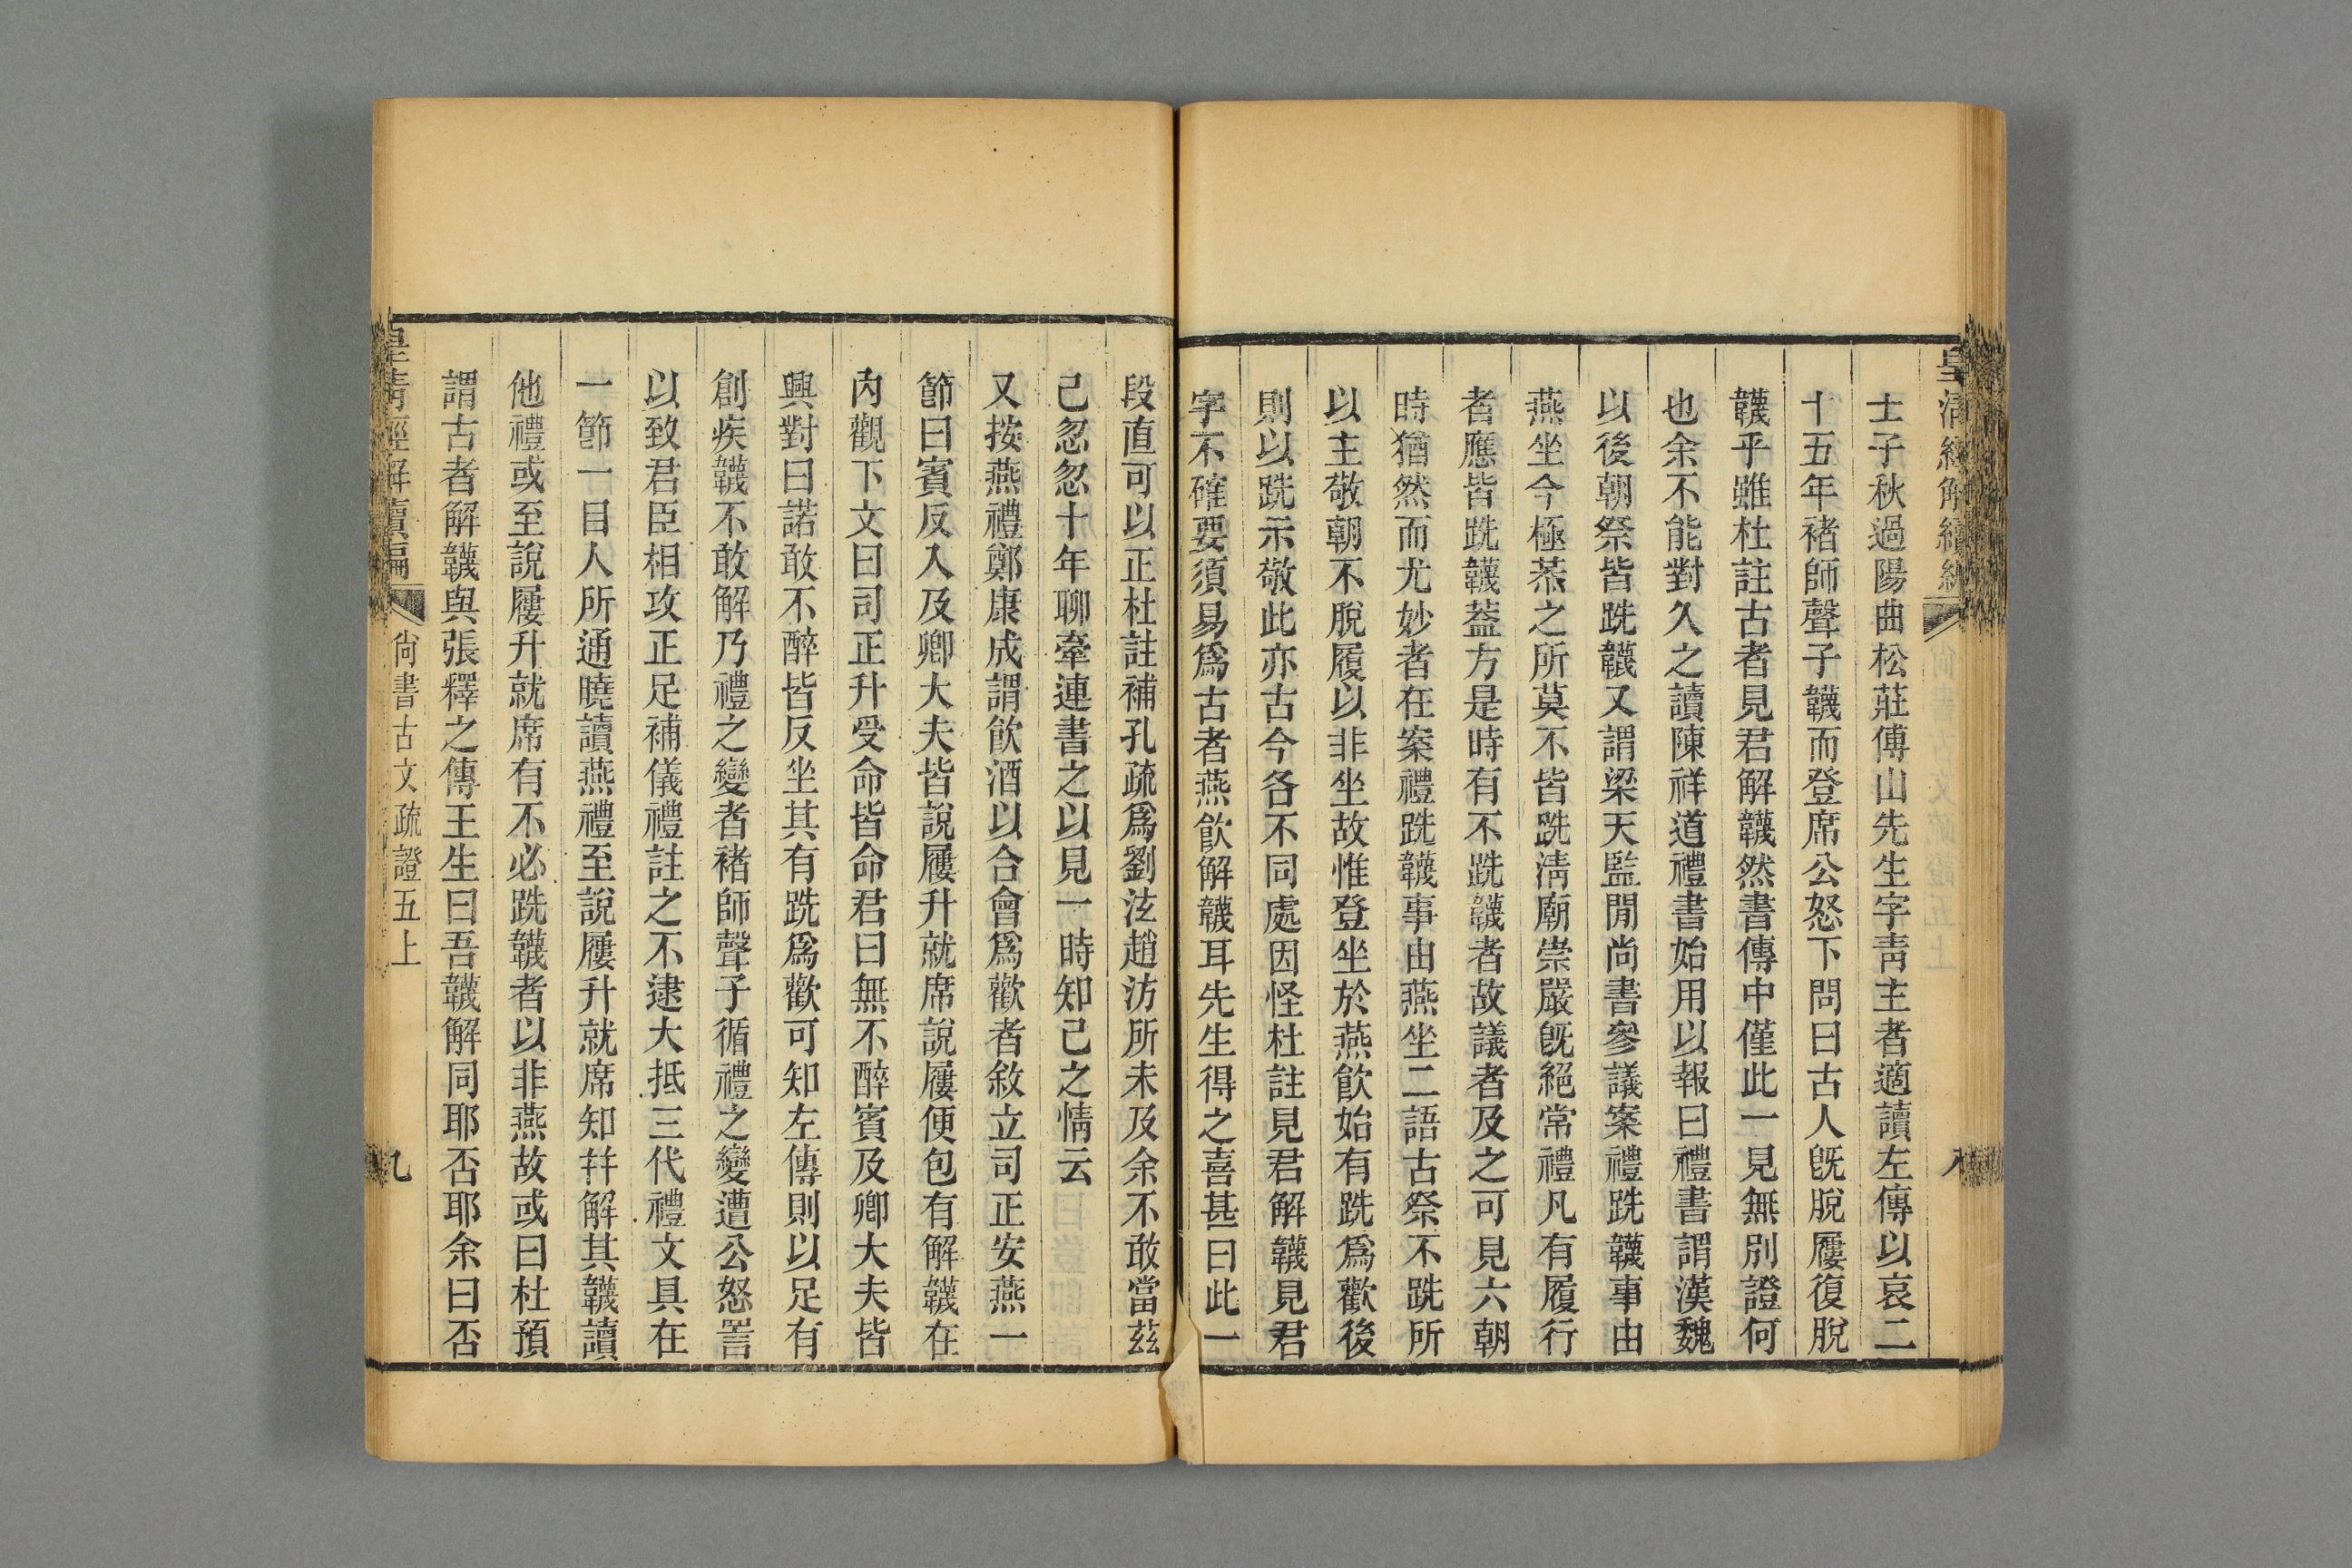 皇清經解續編
八
士子秋過陽曲松莊傅山先生字青主者適讀左傳以哀二
十五年褚師聲子韈而登席公怒下問曰古人旣脫屨復脫
韈乎雖杜註古者見君解韈然書傳中僅此一見無別證何
也余不能對久之讀陳祥道禮書始用以報曰禮書謂漢魏
以後朝祭皆跣韈又謂梁天監閒尚書參議案禮跣韈事由
燕坐今極恭之所莫不皆跣淸廟崇嚴旣絕常禮凡有履行
者應皆跣韈蓋方是時有不跣韈者故議者及之可見六朝
時猶然而尤妙者在案禮跣韈事由燕坐二語古祭不跣所
以主敬朝不脫履以非坐故惟登坐於燕飮始有跣爲歡後
則以跣示敬此亦古今各不同處因怪杜註見君解韈見君
字不確要須易爲古者燕飮解韈耳先生得之喜甚曰此一
段直可以正杜註補孔疏爲劉泫趙汸所未及余不敢當茲
己忽忽十年聊牽連書之以見一時知己之情云
又按燕禮鄭康成謂飮酒以合會爲歡者敘立司正安燕一
節曰賓反入及卿大夫皆說屨升就席說屨便包有解韈在
內觀下文曰司正升受命皆命君曰無不醉賓及卿大夫皆
興對曰諾敢不醉皆反坐其有跣爲歡可知左傳則以足有
創疾韈不敢解乃禮之變者褚師聲子循禮之變遭公怒詈
以致君臣相攻正足補儀禮註之不逮大抵三代禮文具在
一節一目人所通曉讀燕禮至說屨升就席知幷解其韈讀
他禮或至說屨升就席有不必跣韈者以非燕故或曰杜預
謂古者解韈與張釋之傳王生曰吾韈解同耶否耶余曰否
皇清經解續編
尙書古文疏證五上
九